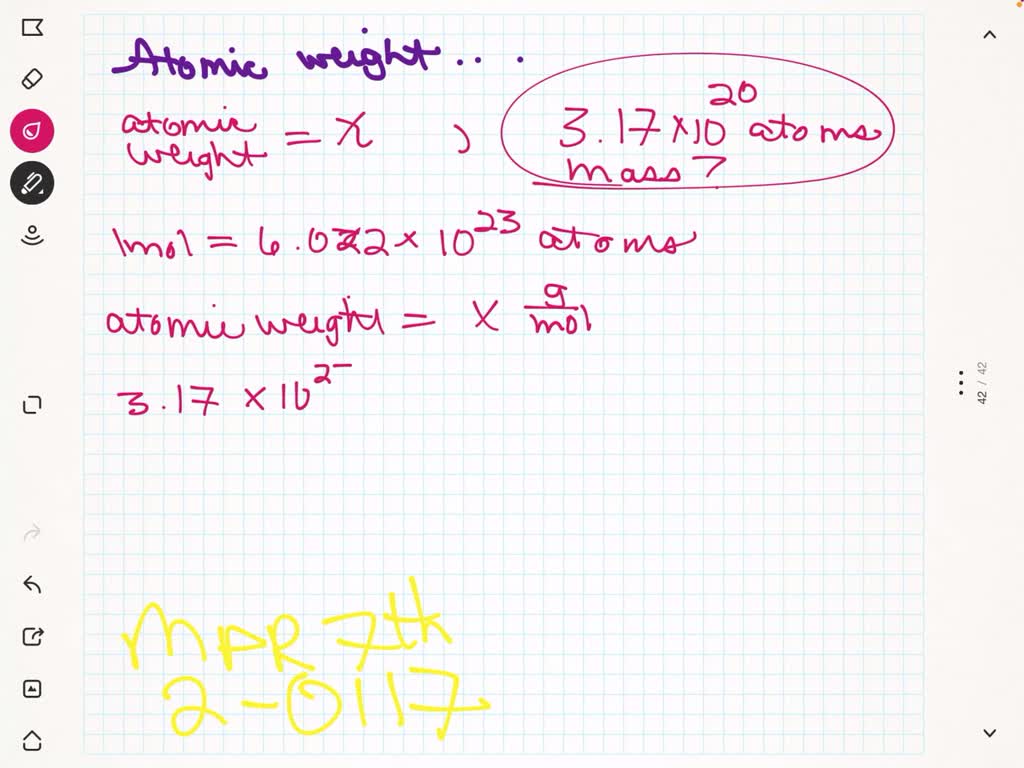 Atomic weight....
atomic weight = x , 3.17 × 10^20 atoms
mass?
1mol = 6.022 × 10^23 atoms
atomic weight = x g/mol
3.17 × 10^2
MPR 7th
2-0117
42 / 42